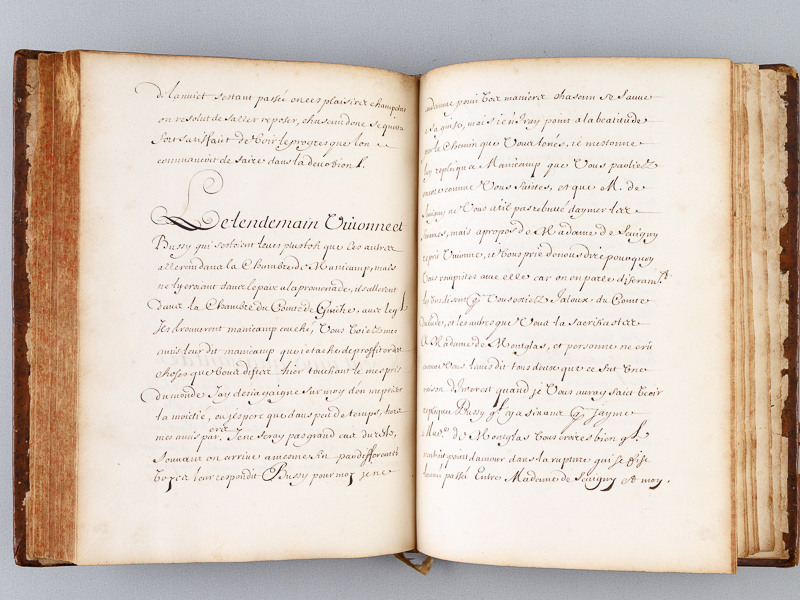 de la nuict sestant passée en ces plaisirs champetres
on resolut de saller reposer, chascun donc se quitta
fort satisfaict de voir le progres que lon
commancoit de faire dans la devotion
Le lendemain Vivonne et
Bussy qui sestoient leués plustost que les autres
allerent dans la Chambre de Manicamp, mais
ne layant pas à la promenade, ils allerent
dans la Chambre du Comte de Guiche, auec lequel
Ils trouverent manicamp couché, Vous voiez mes
amis leur dit manicamp que je tache de proffiter des
choses que vous distes hier touchant le mespris
du monde Jay desia gaigné sur moy den mepriser
la moitié, ou jespere que dans peu de temps, hors
mes amis par. Je ne feray pas grand cas du reste,
Souvant on arrive a mesme fin par differentes
voyes leur respondit Bussy pour moy je ne
condamne point vos manieres chascun se sauve
a sa guise, mais je n'iray point a la beatitude
par le Chemin que vous tenés, je mestonne
luy repliqua Manicamp que Vous parliez
comme Vous faites, et que M. de
Sevigny ne Vous a til pas rebutté daymer les
femmes, mais a propos de Madame de Sevigny
reprit Vivonne, je Vous prie de nous dire pourquoy
Vous rompites avec elle car on en parle diferam.t
les uns disent q Vous estiez Jaloux du Comte
Dulude, et les autres que Vous la sacrifiastes
A Madame de Monglas, et personne ne crû
comme Vous laués dit tous deux que ce fut Une
raison dinterest quand je Vous auray faict Voir
repliqua Bussy q l y a six ans q Jayme
Mad.e de Monglas Vous croirés bien ql
nentroit point damour dans la rupture qui se fist
lannée passée Entre Madame de Sevigny et moy.